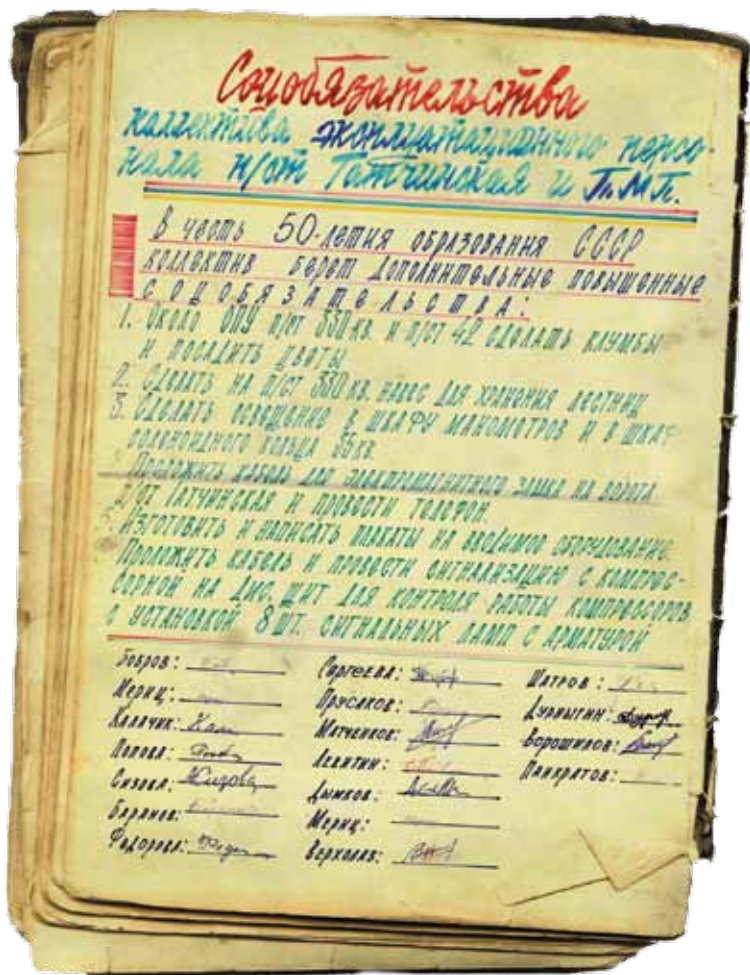 Соцобязательства
коллектива эксплуатационного персо-
нала п/ст Гатчинская и П.М.П.
В честь 50-летия образования СССР
коллектив берет дополнительные повышенные
соцобязательства:
1. Около ОПУ п/ст 330 кв. и п/ст 42 сделать клумбы
и посадить цветы
2. Сделать на п/ст 330 кв. навес для хранения лестниц
3. Сделать освещение в шкафу манометров и в шкаф
соленоидного кольца 35 кв.
Проложить кабель для электромагнитного замка на ворота
п/ст Гатчинская и провести телефон.
Изготовить и написать плакаты на вводимое оборудование.
Проложить кабель и провести сигнализацию с компрес-
сорной на дис. щит для контроля работы компрессоров
с установкой 8 шт. сигнальных ламп с арматурой
Бобров: Сергеева: Шатров:
Мериц: Прусаков: Дурныгин:
Калачик: Матченков: Ворошилов:
Попова: Левитин: Панкратов:
Сизова: Дымков:
Баранов: Мериц:
Федорова: Верхолаз: